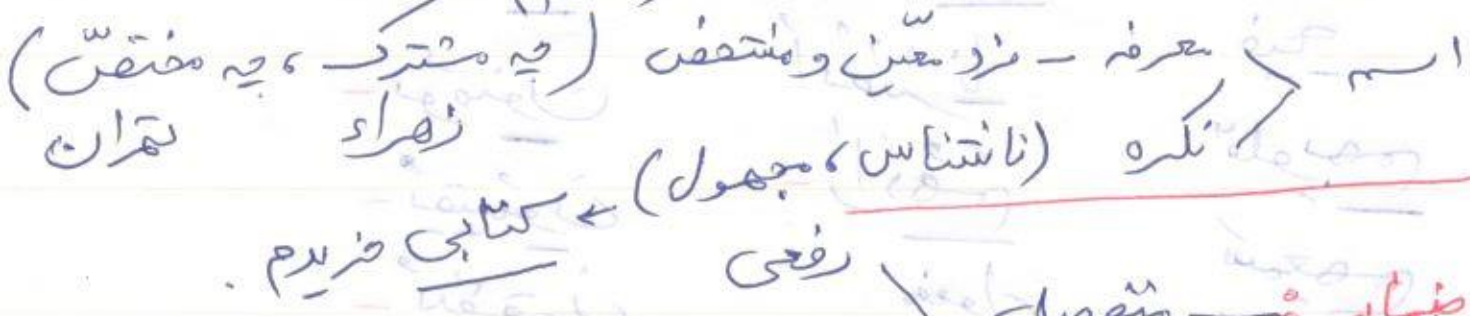 اسم معرفه - فرد معیّن و مشخص (چه مشترک، چه مختصّ)
زهراء تهران
نکره (ناشناس، مجهول) ← کتابی خریدم.
رفعی
منفصل